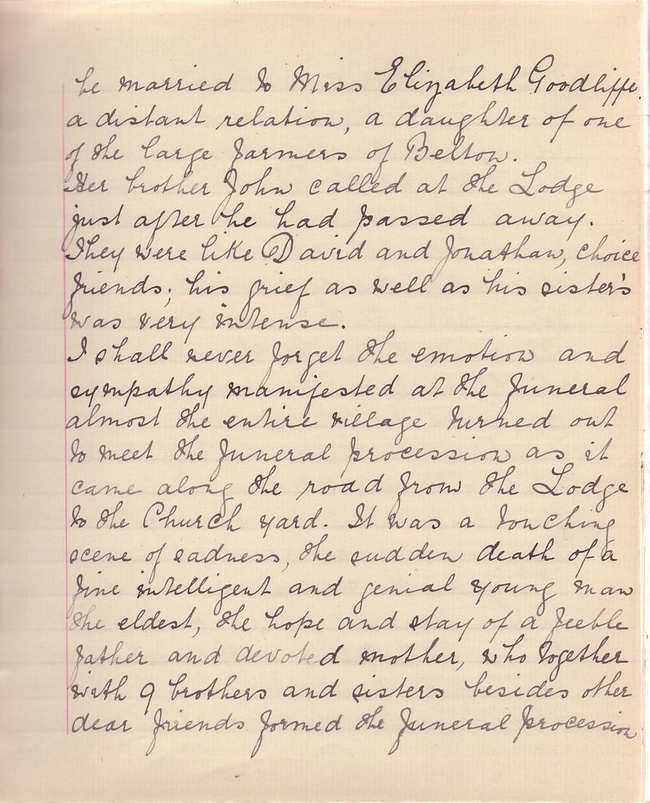 be married to Miss Elizabeth Goodliffe,
a distant relation, a daughter of one
of the large farmers of Belton.
Her brother John called at the Lodge
just after he had passed away.
They were like David and Jonathan, choice
friends; his grief as well as his sister's
was very intense.
I shall never forget the emotion and
sympathy manifested at the funeral
almost the entire village turned out
to meet the funeral procession as it
came along the road from the Lodge
to the Church yard. It was a touching
scene of sadness, the sudden death of a
fine intelligent and genial young man
the eldest, the hope and stay of a feeble
father and devoted mother, who together
with 9 brothers and sisters besides other
dear friends formed the funeral procession